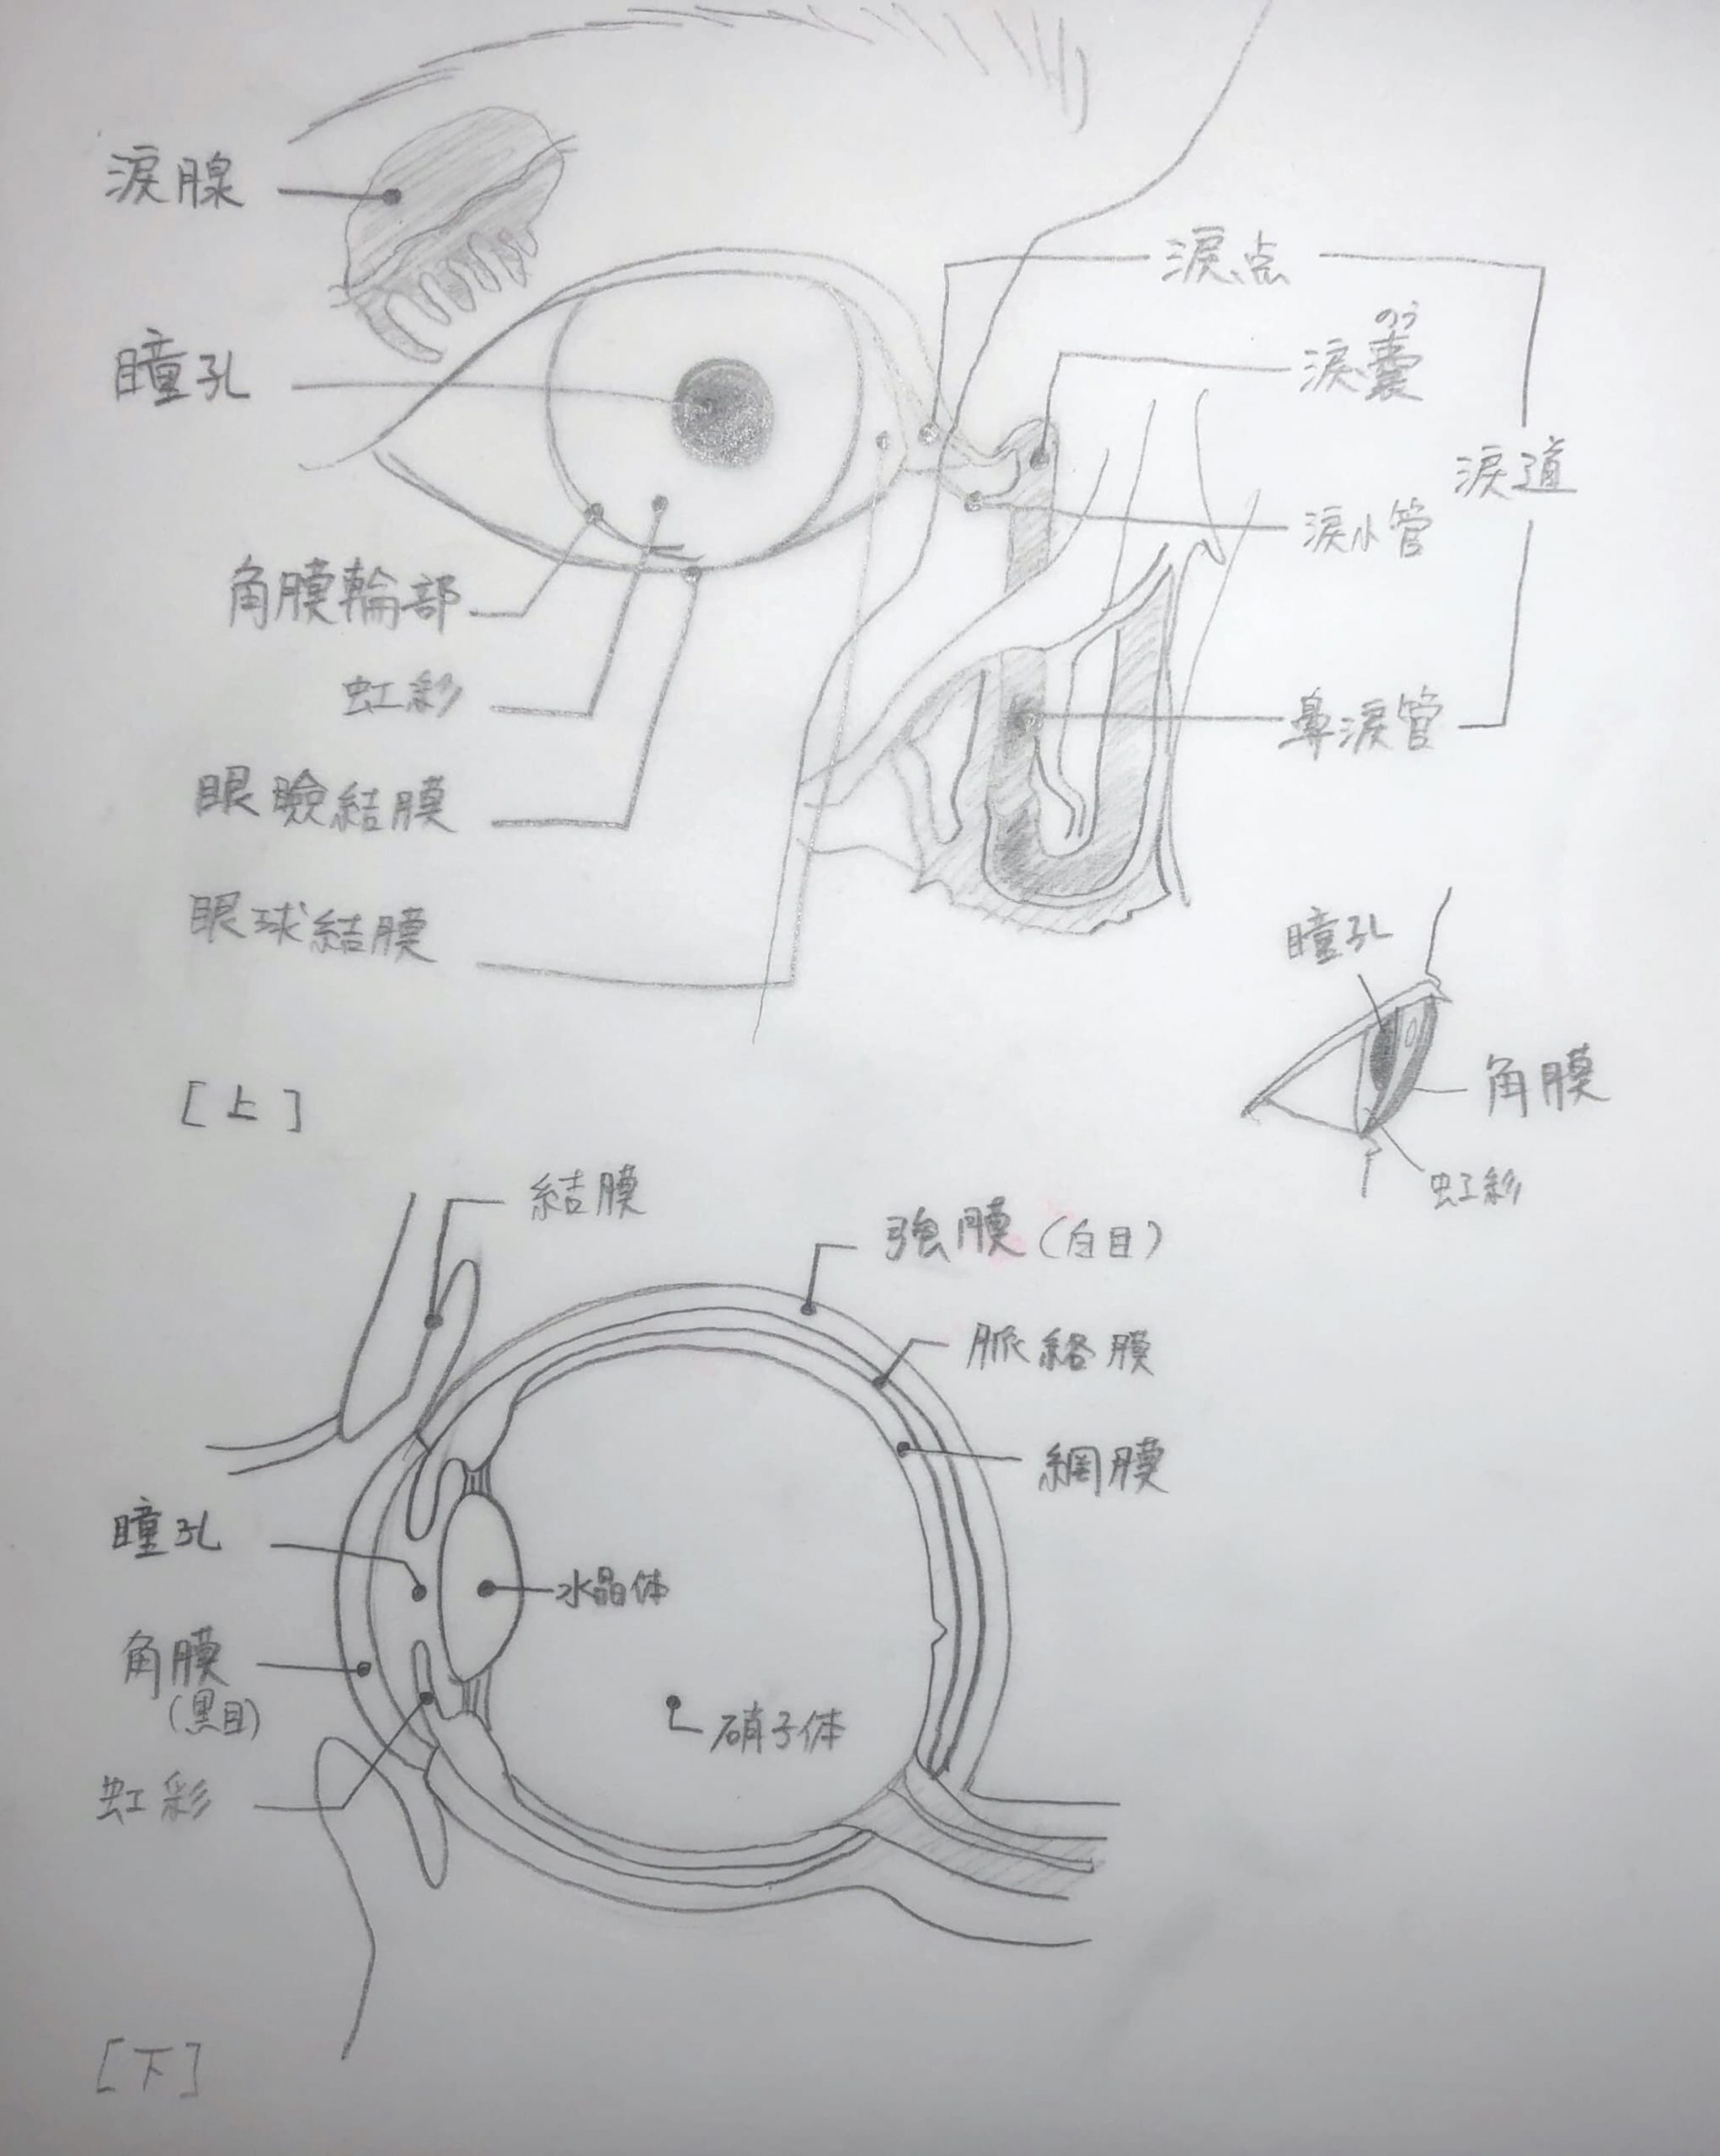 涙腺
瞳孔
角膜輪部
虹彩
眼瞼結膜
眼球結膜
涙点
のう
涙嚢
涙小管
鼻涙管
涙道
[上]
瞳孔
角膜
虹彩
結膜
強膜(白目)
脈絡膜
網膜
瞳孔
水晶体
角膜
(黒目)
硝子体
虹彩
[下]